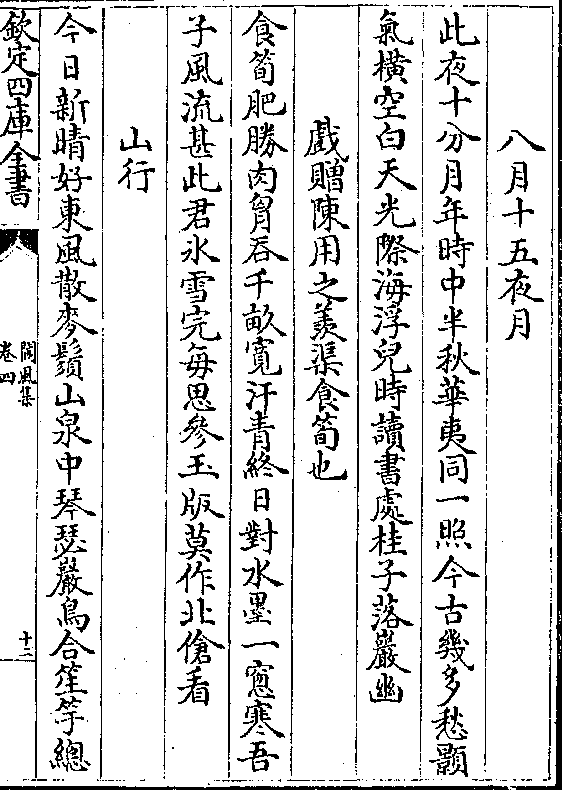 八月十五夜月
此夜十分月年時中半秋華夷同一照今古幾多愁顥
氣橫空白天光際海浮兒時讀書處桂子落巖幽
戲贈陳用之羨渠食筍也
食筍肥勝肉胷吞千畝寛汗青終日對水墨一窻寒吾
子風流甚此君氷雪完每思參玉版莫作北傖看
山行
今日新晴好東風散麥鬚山泉中琴瑟巖鳥合笙竽總
欽定四庫全書
閬風集
卷四
十二